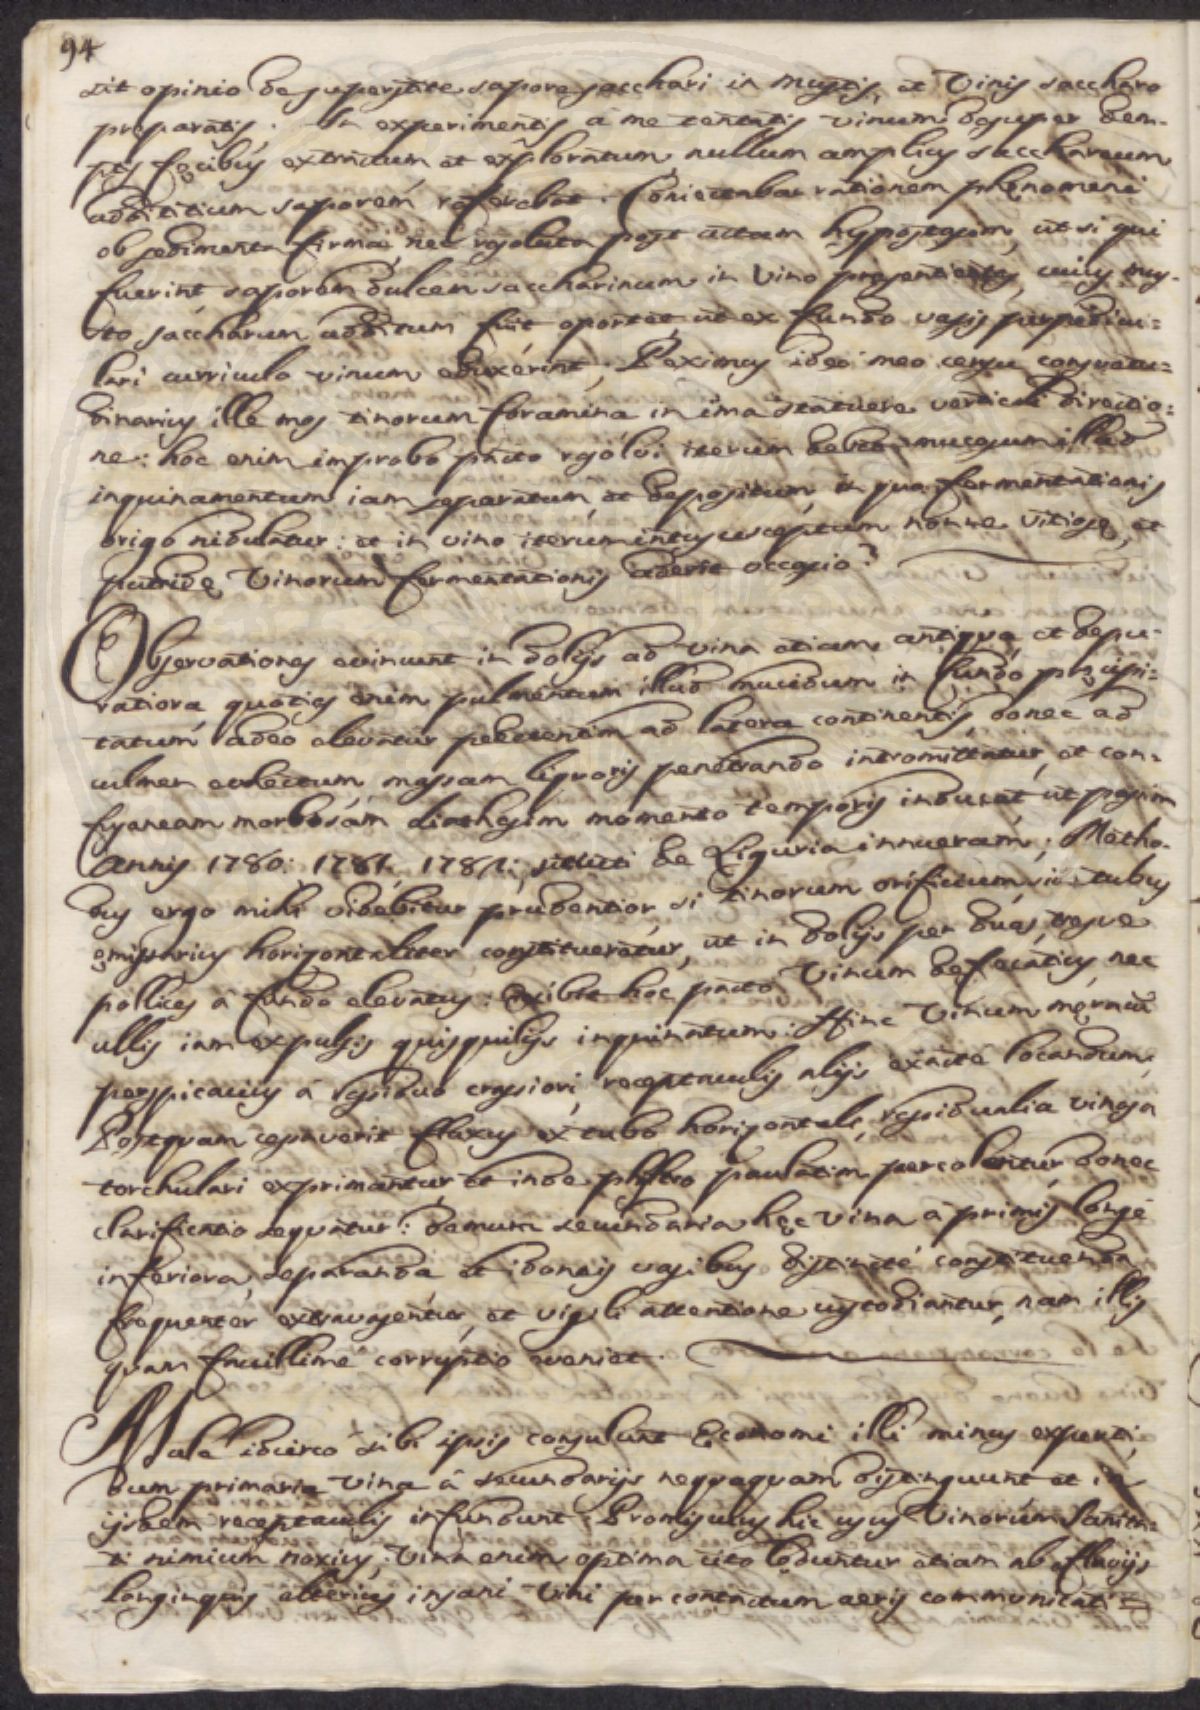 94
sit opinio de superstite sapore sacchari in mustis, et Vinis saccharo
preparatis. In experimentis á me tentatis vinum desuper dem-
ptis fęcibus extractum et exploratum nullum amplius sacchareum
additicium saporem referebat. Coniectabar rationem phęnomeni
ob sedimenta firma, nec resoluta post uitam hypostasim, ut si qui
fuerint saporem dulcem saccharinum in Vino presentientes, cuius mus-
to saccharum additum fuit oportet ut ex fundo vasis perpedicu=
lari curriculo vinum eduxerint; Pessimus ideo meo censu consuetu=
dinarius ille mos tinorum foramina in ima statuere verticali directio=
ne: hoc enim improbo pacto resolvi iterum debet mucosum illud
inquinamentum iam separatum, et depositum, in quo fermentationis
origo nidulatur: et in vino iterum intus susceptum nonne vitiosę, et
putridę Vinorum fermentationis aderit occasio?
Observationes evincunt in dolijs ad vina etiam antiqua, et depu-
ratiora quoties enim pulmentum illud mucidum in fundo pręcipi=
tatum adeo elevatur pertienem ad latera continentis, donec ad
culmen evectum, massam liquoris penetrando intromittatur, et con-
fysaneam morbosam diathesim momento temporis inducat ut passim
Annis 1780: 1781, 1782: sicuti de Liguria innueram; Metho-
dus ergo mihi videbitur prudentior, si tinorum orificium, siu tubus
emissarius horizontaliter constitueretur, ut in dolijs per duas, tresve
pollices á fundo elevatus: exibit hoc pacto Vinum defęcatius, nec
ullis iam expulsis quisquilijs inquinatum: Hinc Vinum meracu
perspicacius á residuo crassiori, receptaculis alijs exacte locandum.
Postquam cessaverit fluxus ex tubo horizontali, residualia vinosa
torchulari exprimantur, et inde philtro paulatim percolentur, donec
clarificatio sequatur: demum secundaria hęc vina á primis longé
inferiora, separanda et idoneis vasibus distincté constituenda
frequenter extravasentur, et vigili attentione custodiantur, nam illis
quam facillime corruptio eveniet.
Male idcirco sibi ipsis consulunt Economi illi minus experti,
dum primaria vina á secundarijs nequaquam distinguunt et in
ijsdem receptaculis infundunt: Promiscuus hic usus Vinorum Sanita-
ti nimium noxius; Vina enim optima cito lęduntur etiam ab effluvijs
longinquis alterius insani Vini per contactum aeris communicati=